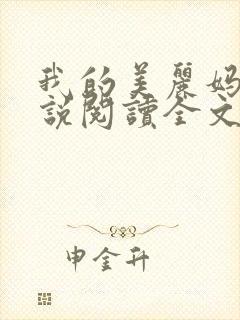 我的美麗妈
說閱讀全文
申金升